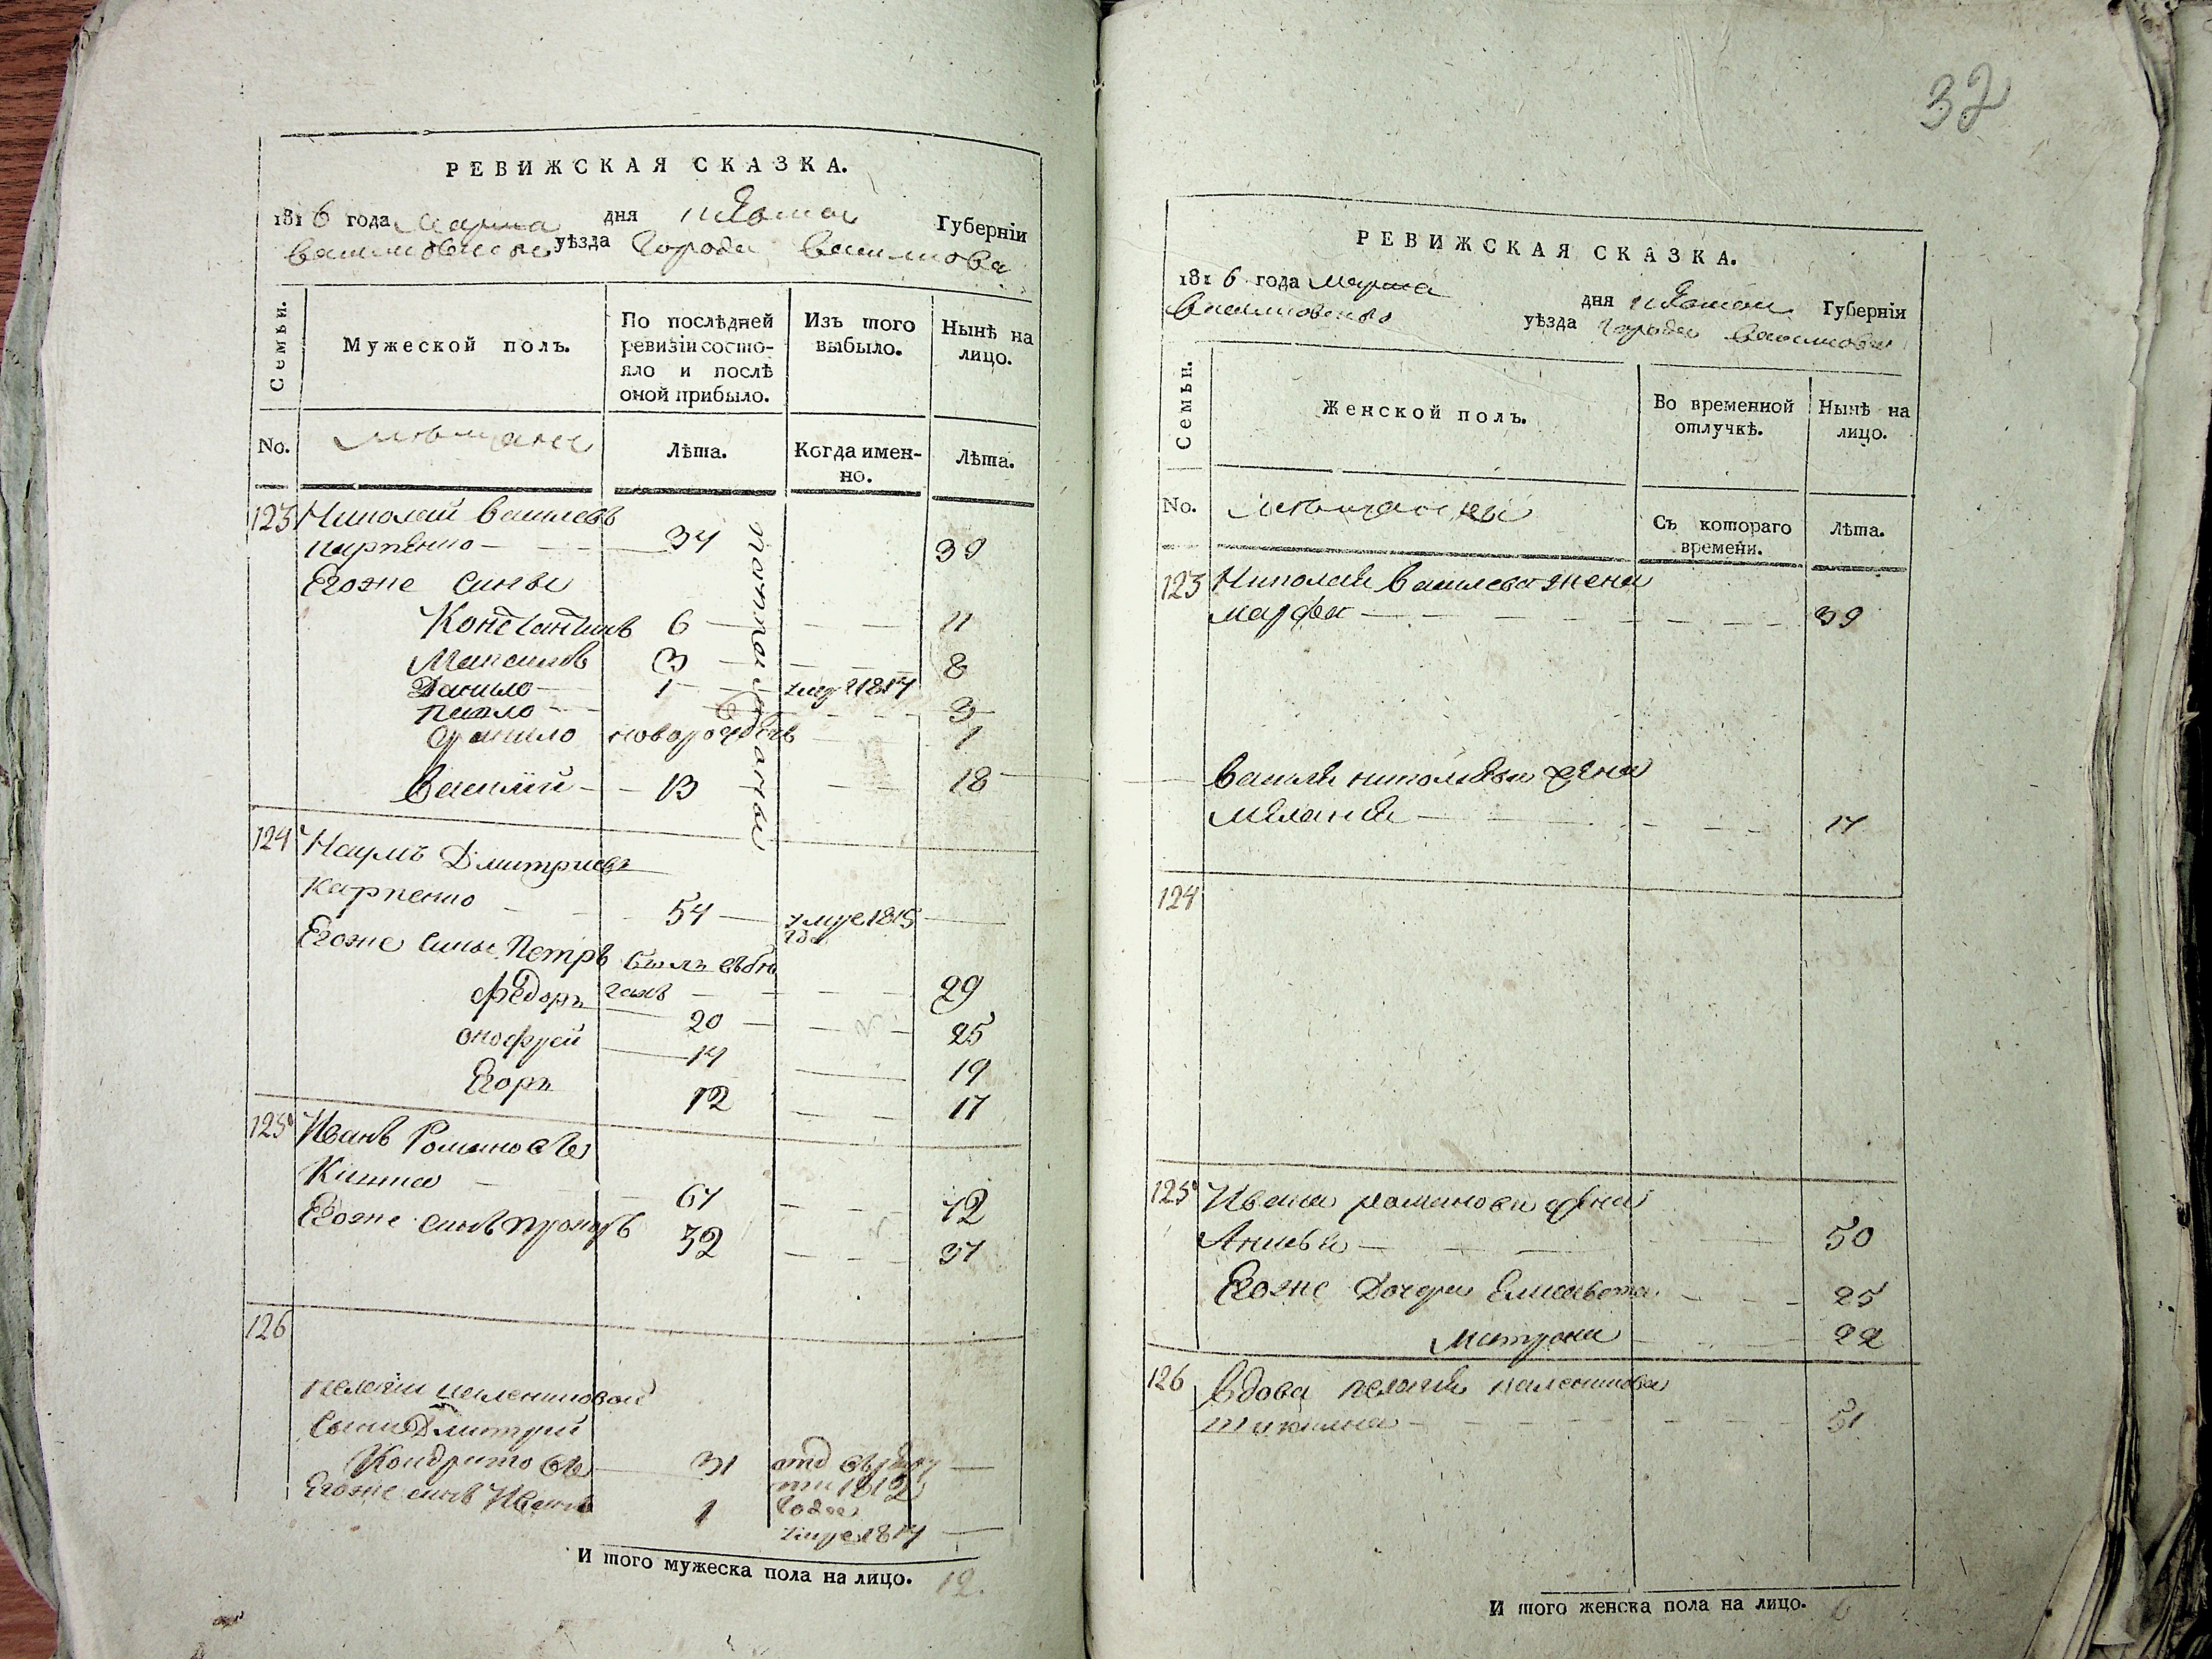 РЕВИЖСКАЯ СКАЗКА.
1816 года Марта дня Губерніи
уѣзда Города
Семьи.
Мужеской полъ.
По послѣдней ревизіи состо-
яло и послѣ
оной прибыло.
Изъ того
выбыло.
Нынѣ на
лицо.
No.
мещане
Лѣта.
Когда имен-
но.
Лѣта.
123 Николай Василевъ
Карпенко 34 39
Егоже сины
Константинъ 6 11
Максимъ 3 8
Данило 1 1814
Павло 3
Данило новорожденъ 1
Василій 13 18
124 Наумъ Дмитриевъ
Карпенко 54 умре 1815
года
Егоже сины Петръ былъ
29
Федоръ 20 25
Онофрей 14 19
Егоръ 12 17
125 Иванъ Романовъ
67 72
Егоже синъ Прокопъ 32 37
126
Пелагии
сынъ Дмитрий
Кондратовъ 31 отд
1812
года
Егоже синъ Иванъ 1
умре 1814
И того мужеска пола на лицо. 12.
32
РЕВИЖСКАЯ СКАЗКА.
1816 года Марта дня Губерніи
уѣзда Города
Семьи.
Женской полъ.
Во временной
отлучкѣ.
Нынѣ на
лицо.
No.
мещанки
Съ котораго
времени.
Лѣта.
123 Николая Василева жена
Марфа 39
Василя Николаева жена
Мелания 17
124
125 Ивана Романова жена
50
Егоже Дочери Елисавета 25
Матрона 22
126 Вдова Пелагия
51
И того женска пола на лицо. 6